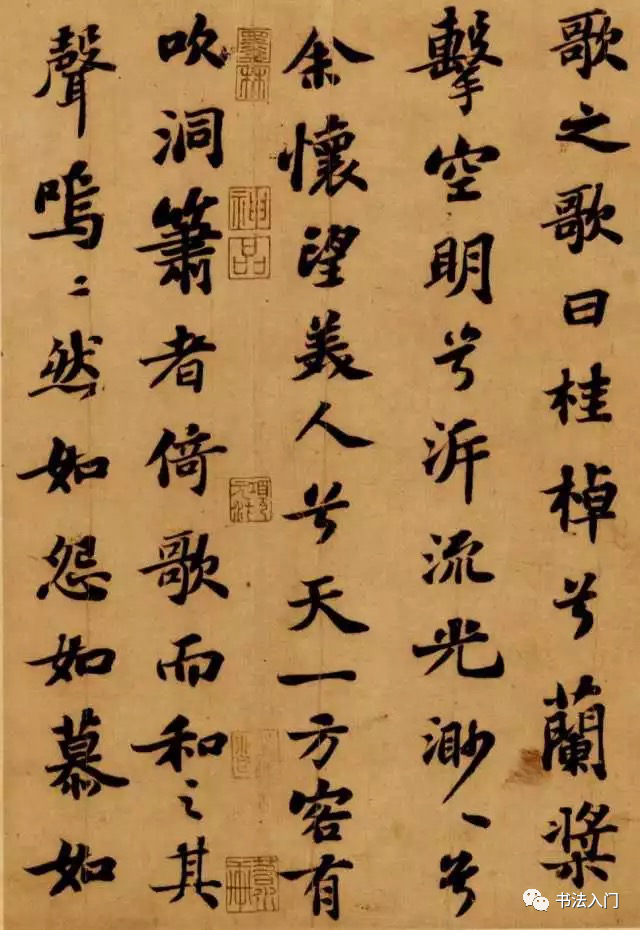 歌之歌曰桂棹兮蘭槳
擊空明兮泝流光渺〻兮
余懷望美人兮天一方客有
吹洞簫者倚歌而和之其
聲嗚〻然如怨如慕如
墨林
神品
书法入门